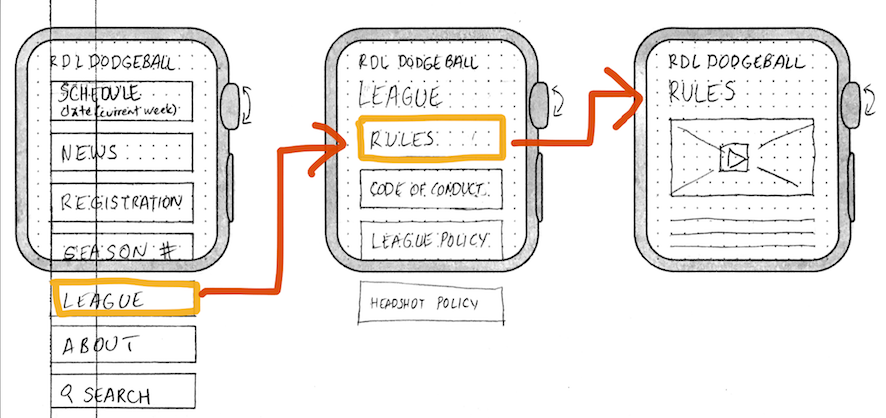 RDL DODGEBALL
SCHEDULE
date (current week)
NEWS
REGISTRATION
SEASON #
LEAGUE
ABOUT
SEARCH
RDL DODGEBALL
LEAGUE
RULES
CODE OF CONDUCT
LEAGUE POLICY
HEADSHOT POLICY
RDL DODGEBALL
RULES